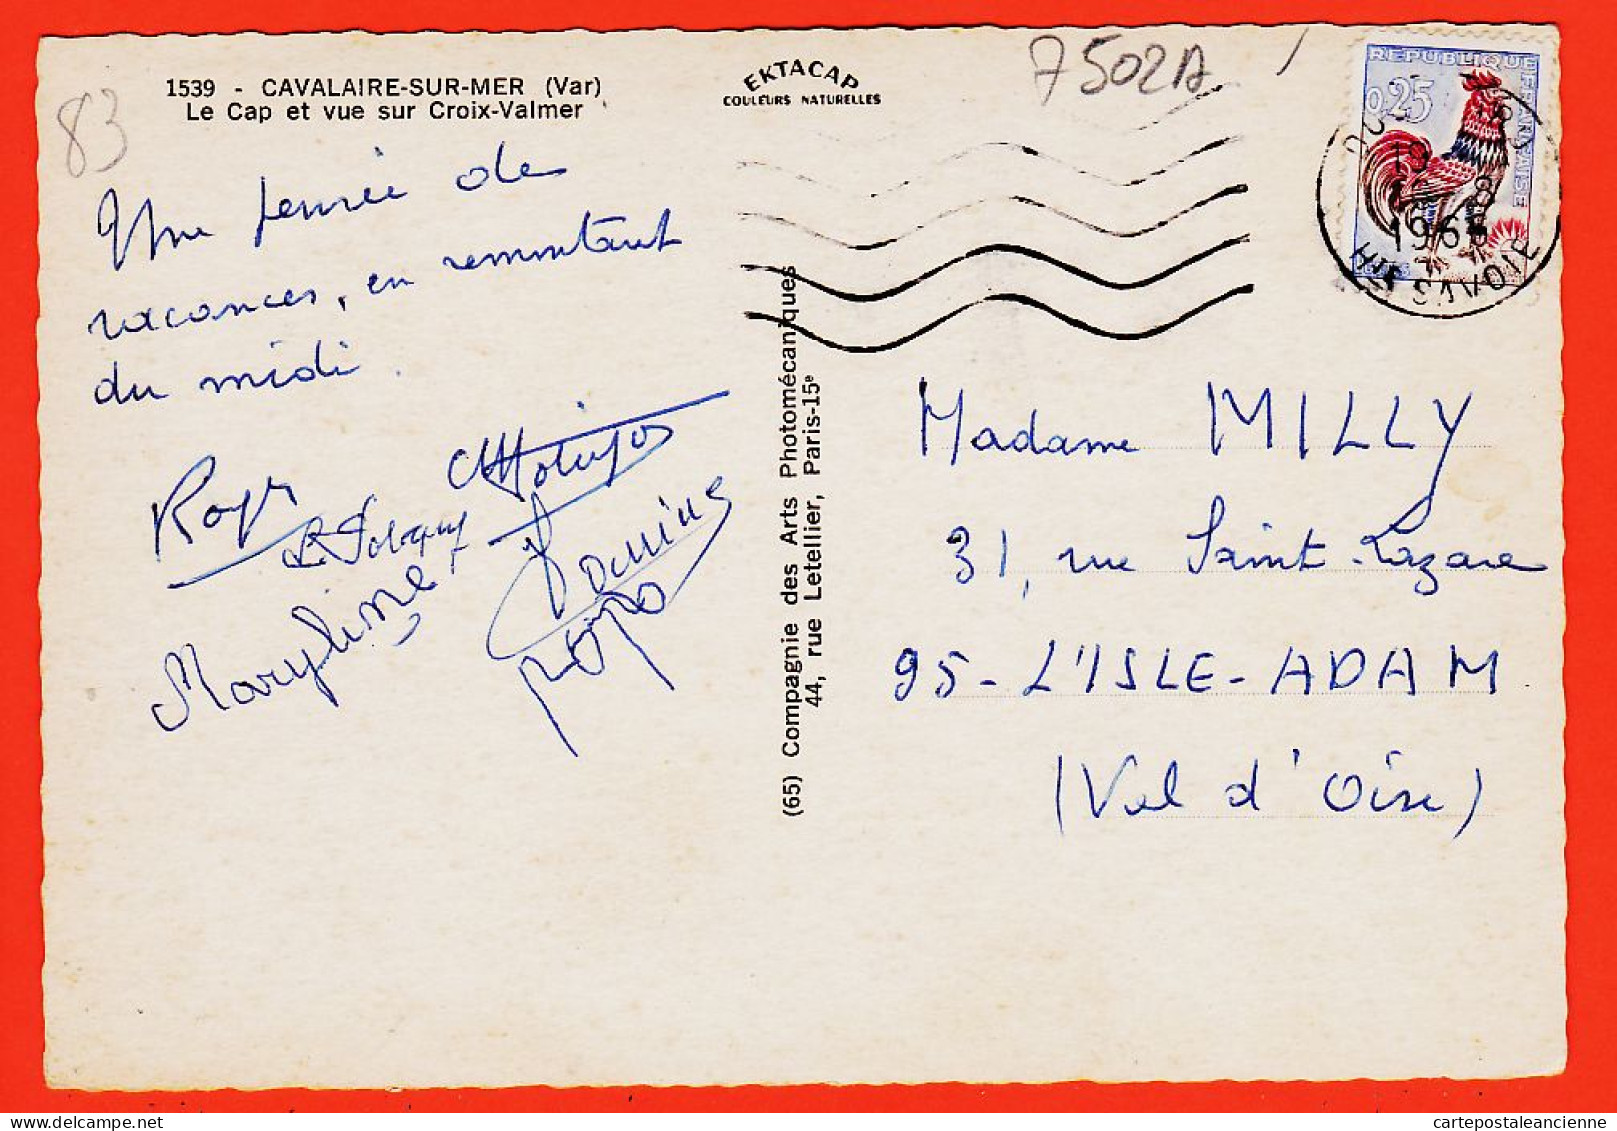 1539 - CAVALAIRE-SUR-MER (Var)
Le Cap et vue sur Croix-Valmer
83
EKTACAP
COULEURS NATURELLES
7502A
REPUBLIQUE FRANÇAISE
0,25
19
8
HTE SAVOIE
Une pensée de
vacances, en remontant
du midi.
Roger
Maryline
papa
(65) Compagnie des Arts Photomécaniques
44, rue Letellier, Paris-15e
Madame MILLY
31, rue Saint-Lazare
95-L'ISLE-ADAM
(Val d'Oise)
cartepostaleancienne